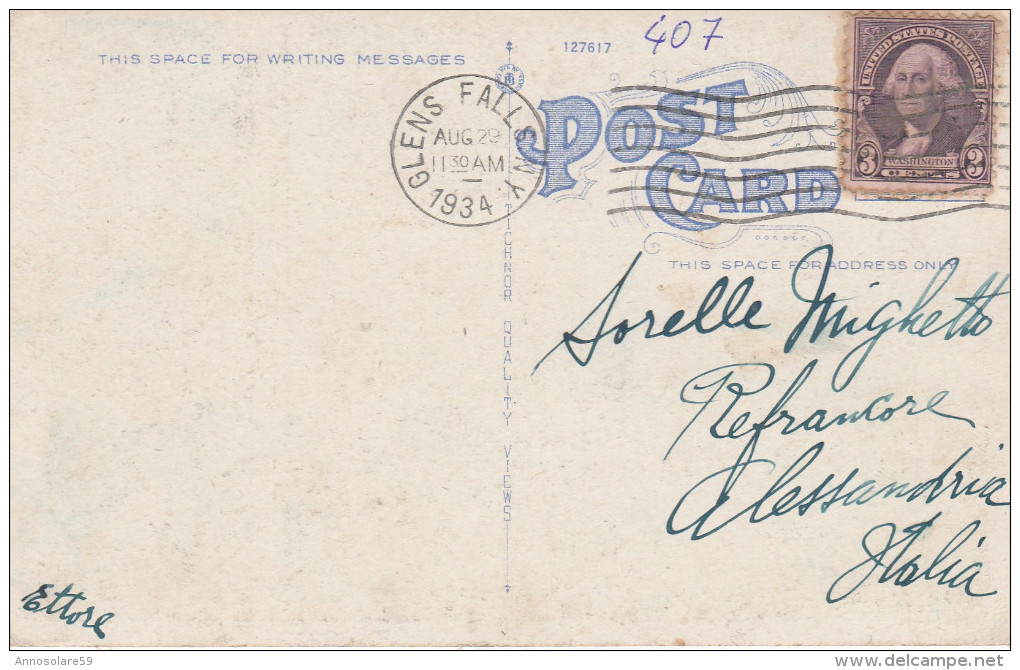 THIS SPACE FOR WRITING MESSAGES
127617
407
GLENS FALLS N.Y.
AUG 29
11 30 AM
1934
UNITED STATES POSTAGE
WASHINGTON
3 3
POST
CARD
THIS SPACE FOR ADDRESS ONLY
TICHNOR QUALITY VIEWS
Sorelle Mighetto
Refrancore
Alessandria
Italia
Ettore
Annosolare59
delcampe.net